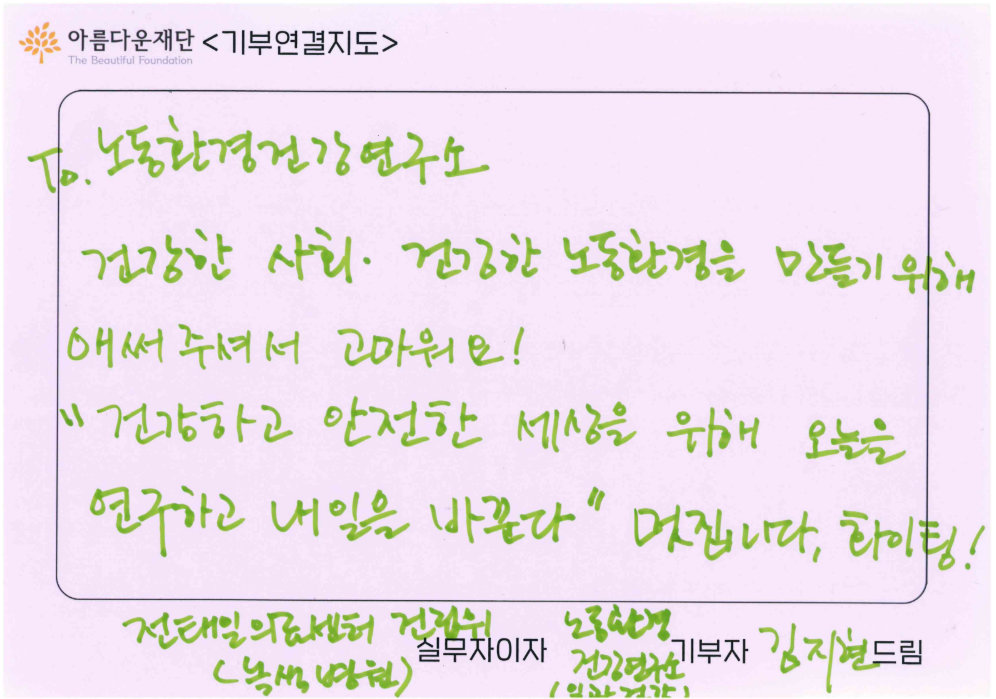 아름다운재단 <기부연결지도>
The Beautiful Foundation
To. 노동환경건강연구소
건강한 사회. 건강한 노동환경을 만들기 위해
애써 주셔서 고마워요!
"건강하고 안전한 세상을 위해 오늘을
연구하고 내일을 바꾼다" 멋집니다, 화이팅!
전태일의료센터 건립위
(녹색병원)
실무자이자
노동환경
건강연구소
기부자 김지현드림